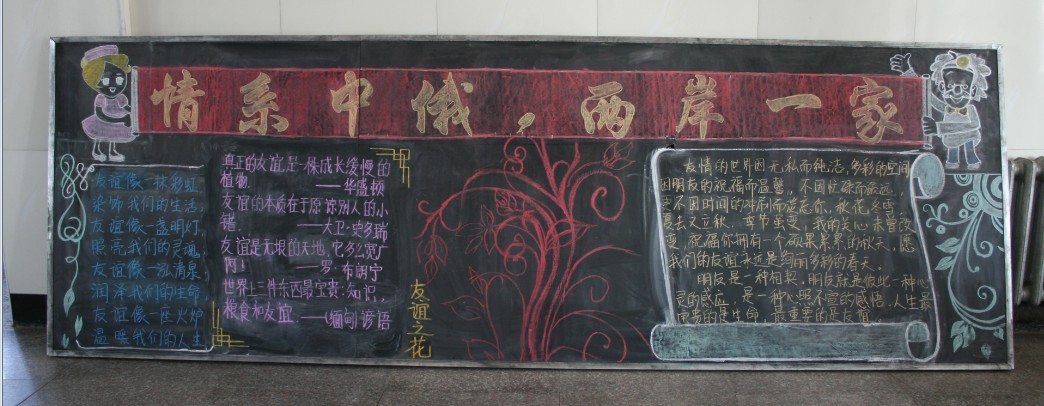 情系中俄，两岸一家
友谊像一抹彩虹，
染饰我们的生活，
友谊像一盏明灯，
照亮我们的灵魂，
友谊像一泓清泉，
润泽我们的生命，
友谊像一座火炉
温暖我们的人生
真正的友谊是一株成长缓慢的
植物. ——华盛顿
友谊的本质在于原惊别人的小
错. ——大卫·史多瑞
友谊是无垠的天地，它多么宽广
啊！ ——罗·布朗宁
世界上三件东西最宝贵：知识，
粮食和友谊 ——(缅甸)谚语
友谊之花
友情的世界因无私而纯洁，多彩的空间
因朋友的祝福而温馨，不因忙碌而疏远
更不因时间的冲刷而淡忘你，秋花冬雪
夏去又立秋，季节虽变，我的关心未曾改
变，祝福你拥有一个硕果累累的秋天，愿
我们的友谊永远是绚丽多彩的春天。
朋友是一种相契，朋友就是彼此一种心
灵的感应，是一种心照不宣的感悟，人生最
重要的是生命，最重要的是友谊